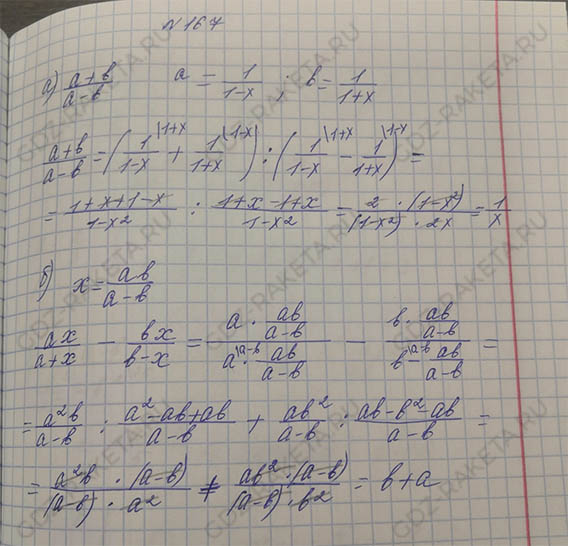 №167
а) (a+b)/(a-b)   a = 1/(1-x) ; b = 1/(1+x)
(a+b)/(a-b) = (1/(1-x) \1+x + 1/(1+x) \1-x) : (1/(1-x) \1+x - 1/(1+x) \1-x) =
= (1+x+1-x)/(1-x²) : (1+x-1+x)/(1-x²) = (2 · (1-x²))/((1-x²) · 2x) = 1/x
б) x = ab/(a-b)
ax/(a+x) - bx/(b-x) = (a · ab/(a-b))/(a \a-b · ab/(a-b)) - (b · ab/(a-b))/(b \a-b - ab/(a-b)) =
= a²b/(a-b) : (a²-ab+ab)/(a-b) + ab²/(a-b) : (ab-b²-ab)/(a-b) =
= (a²b · (a-b))/((a-b) · a²) + (ab² · (a-b))/((a-b) · b²) = b+a
GDZ-RAKETA.RU